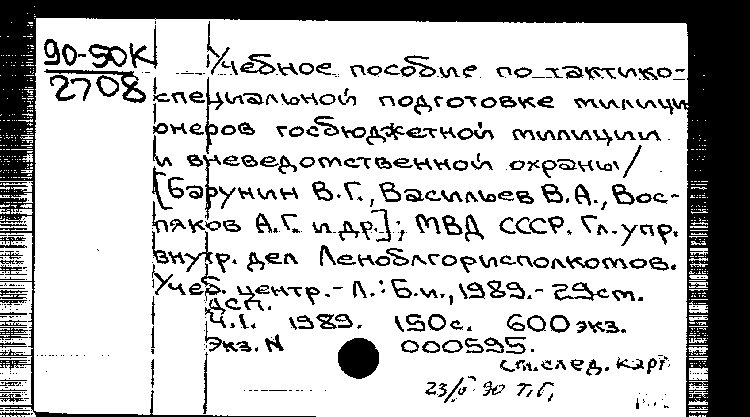 90-50К
2708
Учебное пособие по тактико-
специальной подготовке милици
онеров госбюджетной милиции
и вневедомственной охраны /
[Барунин В.Г., Васильев В.А., Вос-
пяков А.Г. и др.]; МВД СССР. Гл. упр.
внутр. дел Леноблгорисполкомов.
Учеб. центр. - Л.: Б.и., 1989. - 29 см.
ДСП.
Ч.1. 1989. 150 с. 600 экз.
Экз. N 000595.
см. след. карт
23/V 90 Т.Г.